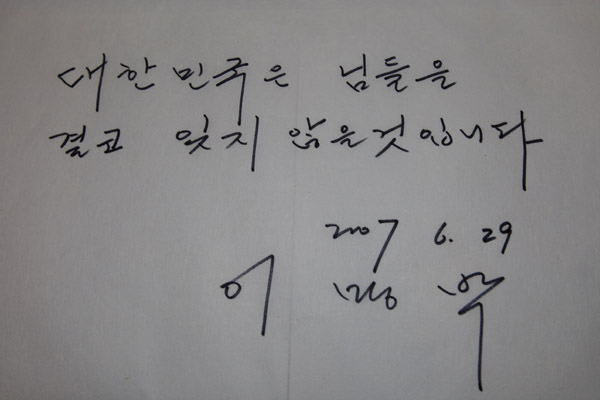 대한민국은 님들을
결코 잊지 않을것입니다
2007 6. 29
이 명 박